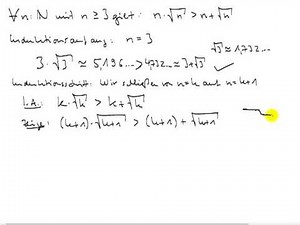 ∀ n∈ℕ mit n ≥ 3 gilt: n·√n > n+√n
Induktionsanfang: n = 3
√3 ≈ 1,732...
3·√3 ≈ 5,196... > 4,732... ≈ 3+√3
Induktionsschritt: Wir schließen von n=k auf n=k+1
I.A.: k·√k > k+√k
Zeige: (k+1)·√k+1 > (k+1)+√k+1